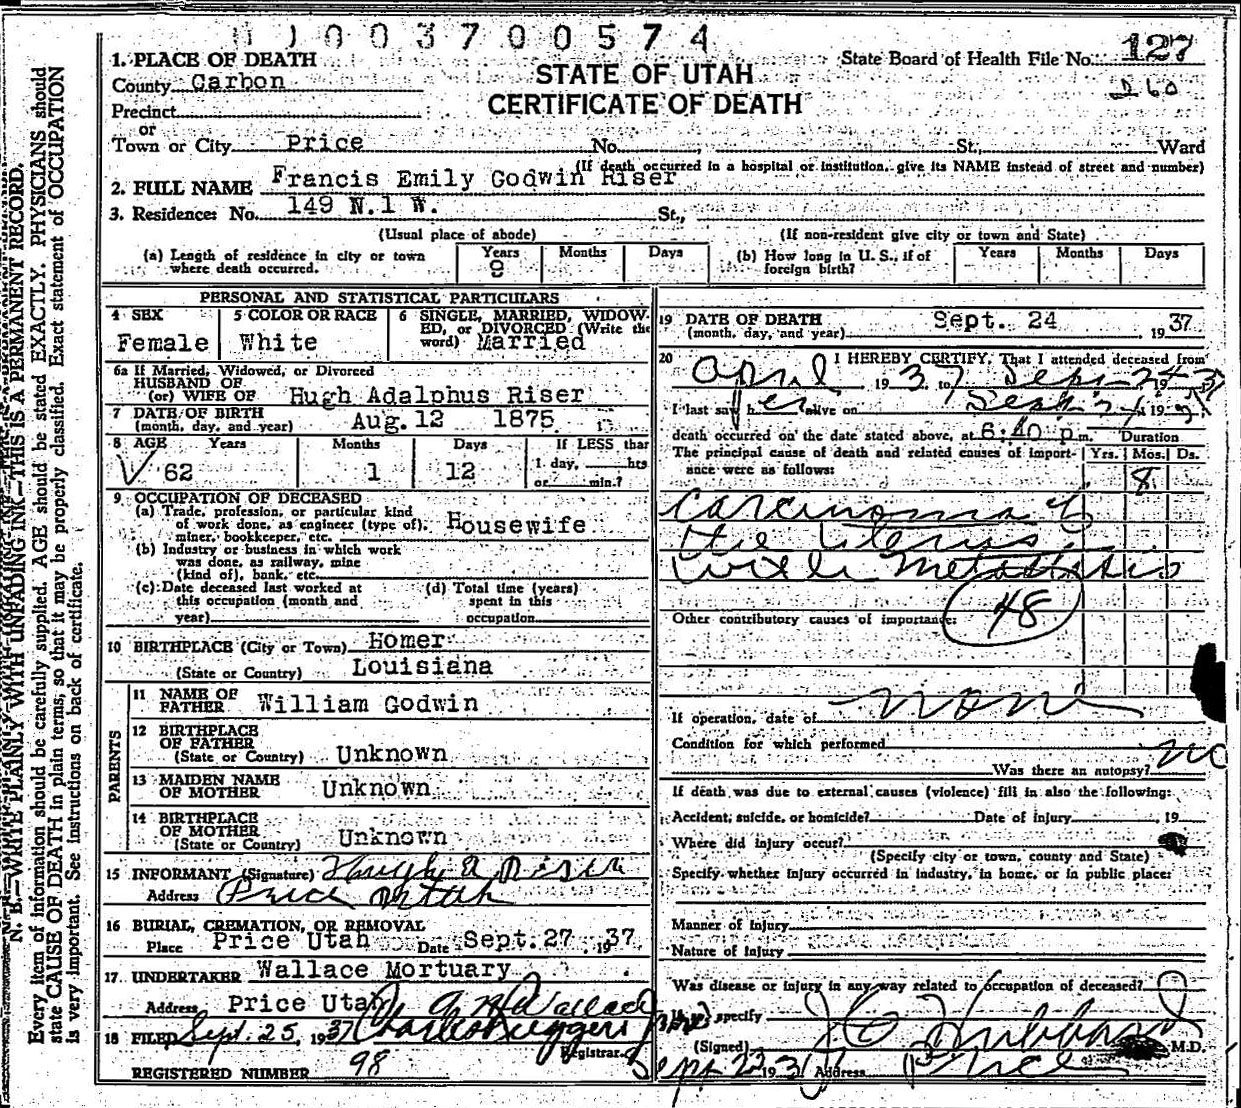 0 1 0 0 3 7 0 0 5 7 4
State Board of Health File No. 127
D 60
STATE OF UTAH
CERTIFICATE OF DEATH
1. PLACE OF DEATH
County Carbon
Precinct
or
Town or City Price No. St., Ward
(If death occurred in a hospital or institution, give its NAME instead of street and number)
2. FULL NAME Francis Emily Godwin Riser
3. Residence: No. 149 N. 1 W. St.,
(Usual place of abode) (If non-resident give city or town and State)
(a) Length of residence in city or town where death occurred. Years 9 Months Days
(b) How long in U. S., if of foreign birth? Years Months Days
PERSONAL AND STATISTICAL PARTICULARS
4 SEX Female
5 COLOR OR RACE White
6 SINGLE, MARRIED, WIDOW-
ED, or DIVORCED (Write the
word) Married
6a If Married, Widowed, or Divorced
HUSBAND OF
(or) WIFE OF Hugh Adalphus Riser
7 DATE OF BIRTH
(month, day, and year) Aug. 12 1875
8 AGE Years 62 Months 1 Days 12
If LESS than
1 day, hrs
or min.?
9 OCCUPATION OF DECEASED
(a) Trade, profession, or particular kind
of work done, as engineer (type of),
miner, bookkeeper, etc. Housewife
(b) Industry or business in which work
was done, as railway, mine
(kind of), bank, etc.
(c) Date deceased last worked at
this occupation (month and
year)
(d) Total time (years)
spent in this
occupation
10 BIRTHPLACE (City or Town) Homer
(State or Country) Louisiana
PARENTS
11 NAME OF
FATHER William Godwin
12 BIRTHPLACE
OF FATHER
(State or Country) Unknown
13 MAIDEN NAME
OF MOTHER Unknown
14 BIRTHPLACE
OF MOTHER
(State or Country) Unknown
15 INFORMANT (Signature) Hugh A Riser
Address Price Utah
16 BURIAL, CREMATION, OR REMOVAL
Place Price Utah Date Sept. 27 1937
17 UNDERTAKER Wallace Mortuary
Address Price Utah Wallace
18 FILED Sept. 25, 1937
Registrar.
REGISTERED NUMBER 98
19 DATE OF DEATH
(month, day, and year) Sept. 24 1937
20 I HEREBY CERTIFY, That I attended deceased from
April 1937 to Sept 24 1937
I last saw her alive on Sept 24 19
death occurred on the date stated above, at 6:40 p.m. Duration
The principal cause of death and related causes of import-
ance were as follows: Yrs. Mos. Ds.
8
Carcinoma of
the Uterus
with metastasis
48
Other contributory causes of importance:
If operation, date of none
Condition for which performed
Was there an autopsy? no
If death was due to external causes (violence) fill in also the following:
Accident, suicide, or homicide? Date of injury , 19
Where did injury occur?
(Specify city or town, county and State)
Specify whether injury occurred in industry, in home, or in public place:
Manner of Injury
Nature of Injury
Was disease or injury in any way related to occupation of deceased?
If so, specify
(Signed) J C Hubbard M.D.
Address Price
N. B.—WRITE PLAINLY WITH UNFADING INK—THIS IS A PERMANENT RECORD.
Every item of information should be carefully supplied. AGE should be stated EXACTLY. PHYSICIANS should
state CAUSE OF DEATH in plain terms, so that it may be properly classified. Exact statement of OCCUPATION
is very important. See instructions on back of certificate.